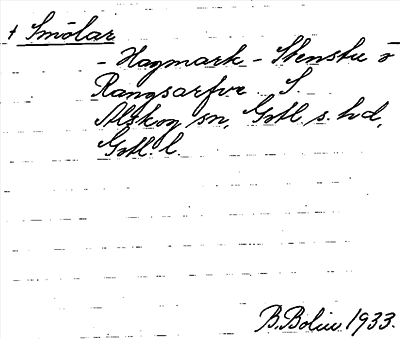 † Smölar
- Hagmark - Stenstu o
Rangsarfve S.
Alskog sn, Gotl. s. hd,
Gotl. l.
B. Bolin 1933.